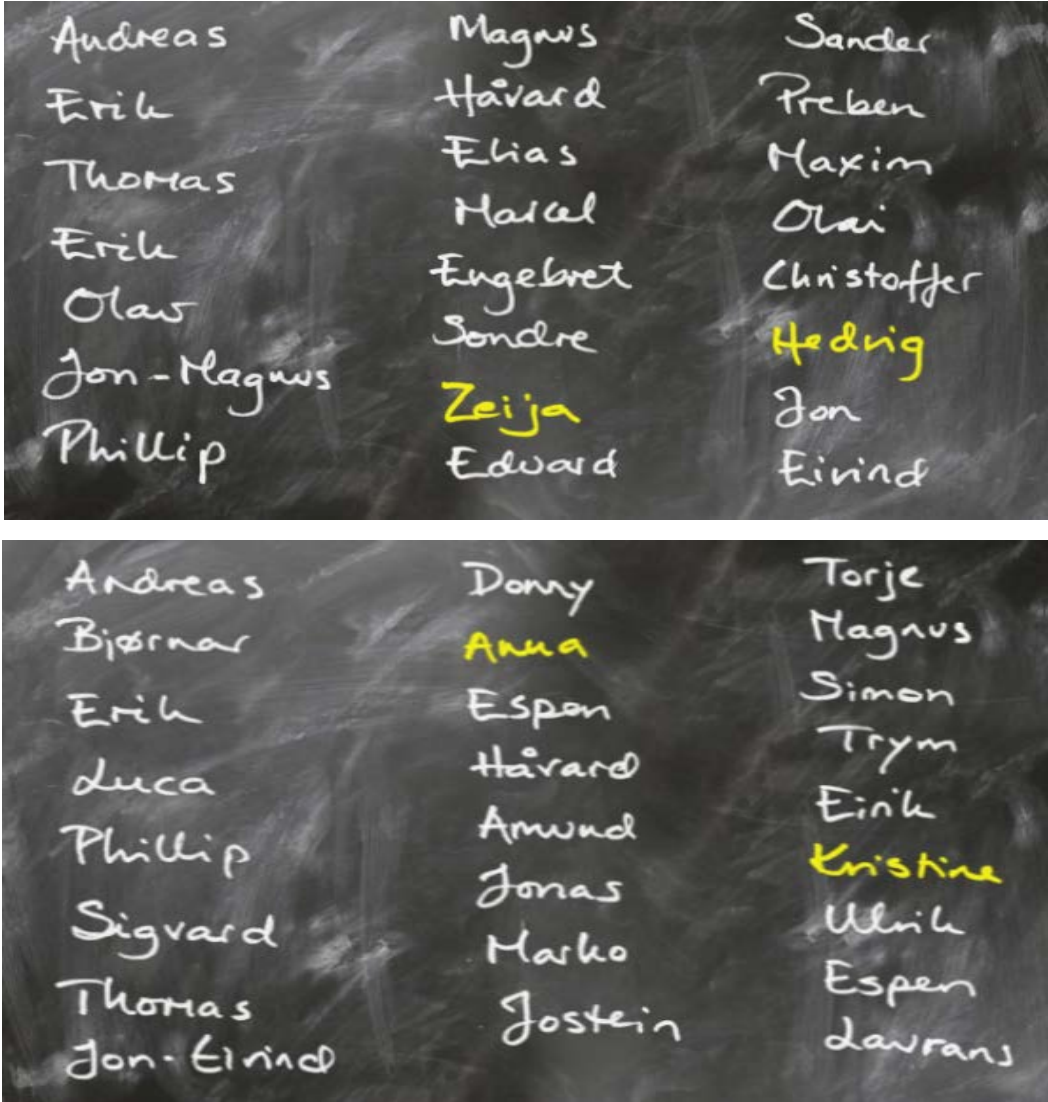 Andreas
Erik
Thomas
Erik
Olav
Jon-Magnus
Phillip
Magnus
Håvard
Elias
Marcel
Engebret
Sondre
Zeija
Edvard
Sander
Preben
Maxim
Olai
Christoffer
Hedvig
Jon
Eivind
Andreas
Bjørnar
Erik
Luca
Phillip
Sigvard
Thomas
Jon-Eivind
Donny
Anna
Espen
Håvard
Amund
Jonas
Marko
Jostein
Torje
Magnus
Simon
Trym
Eirik
Kristine
Ulrik
Espen
Lavrans